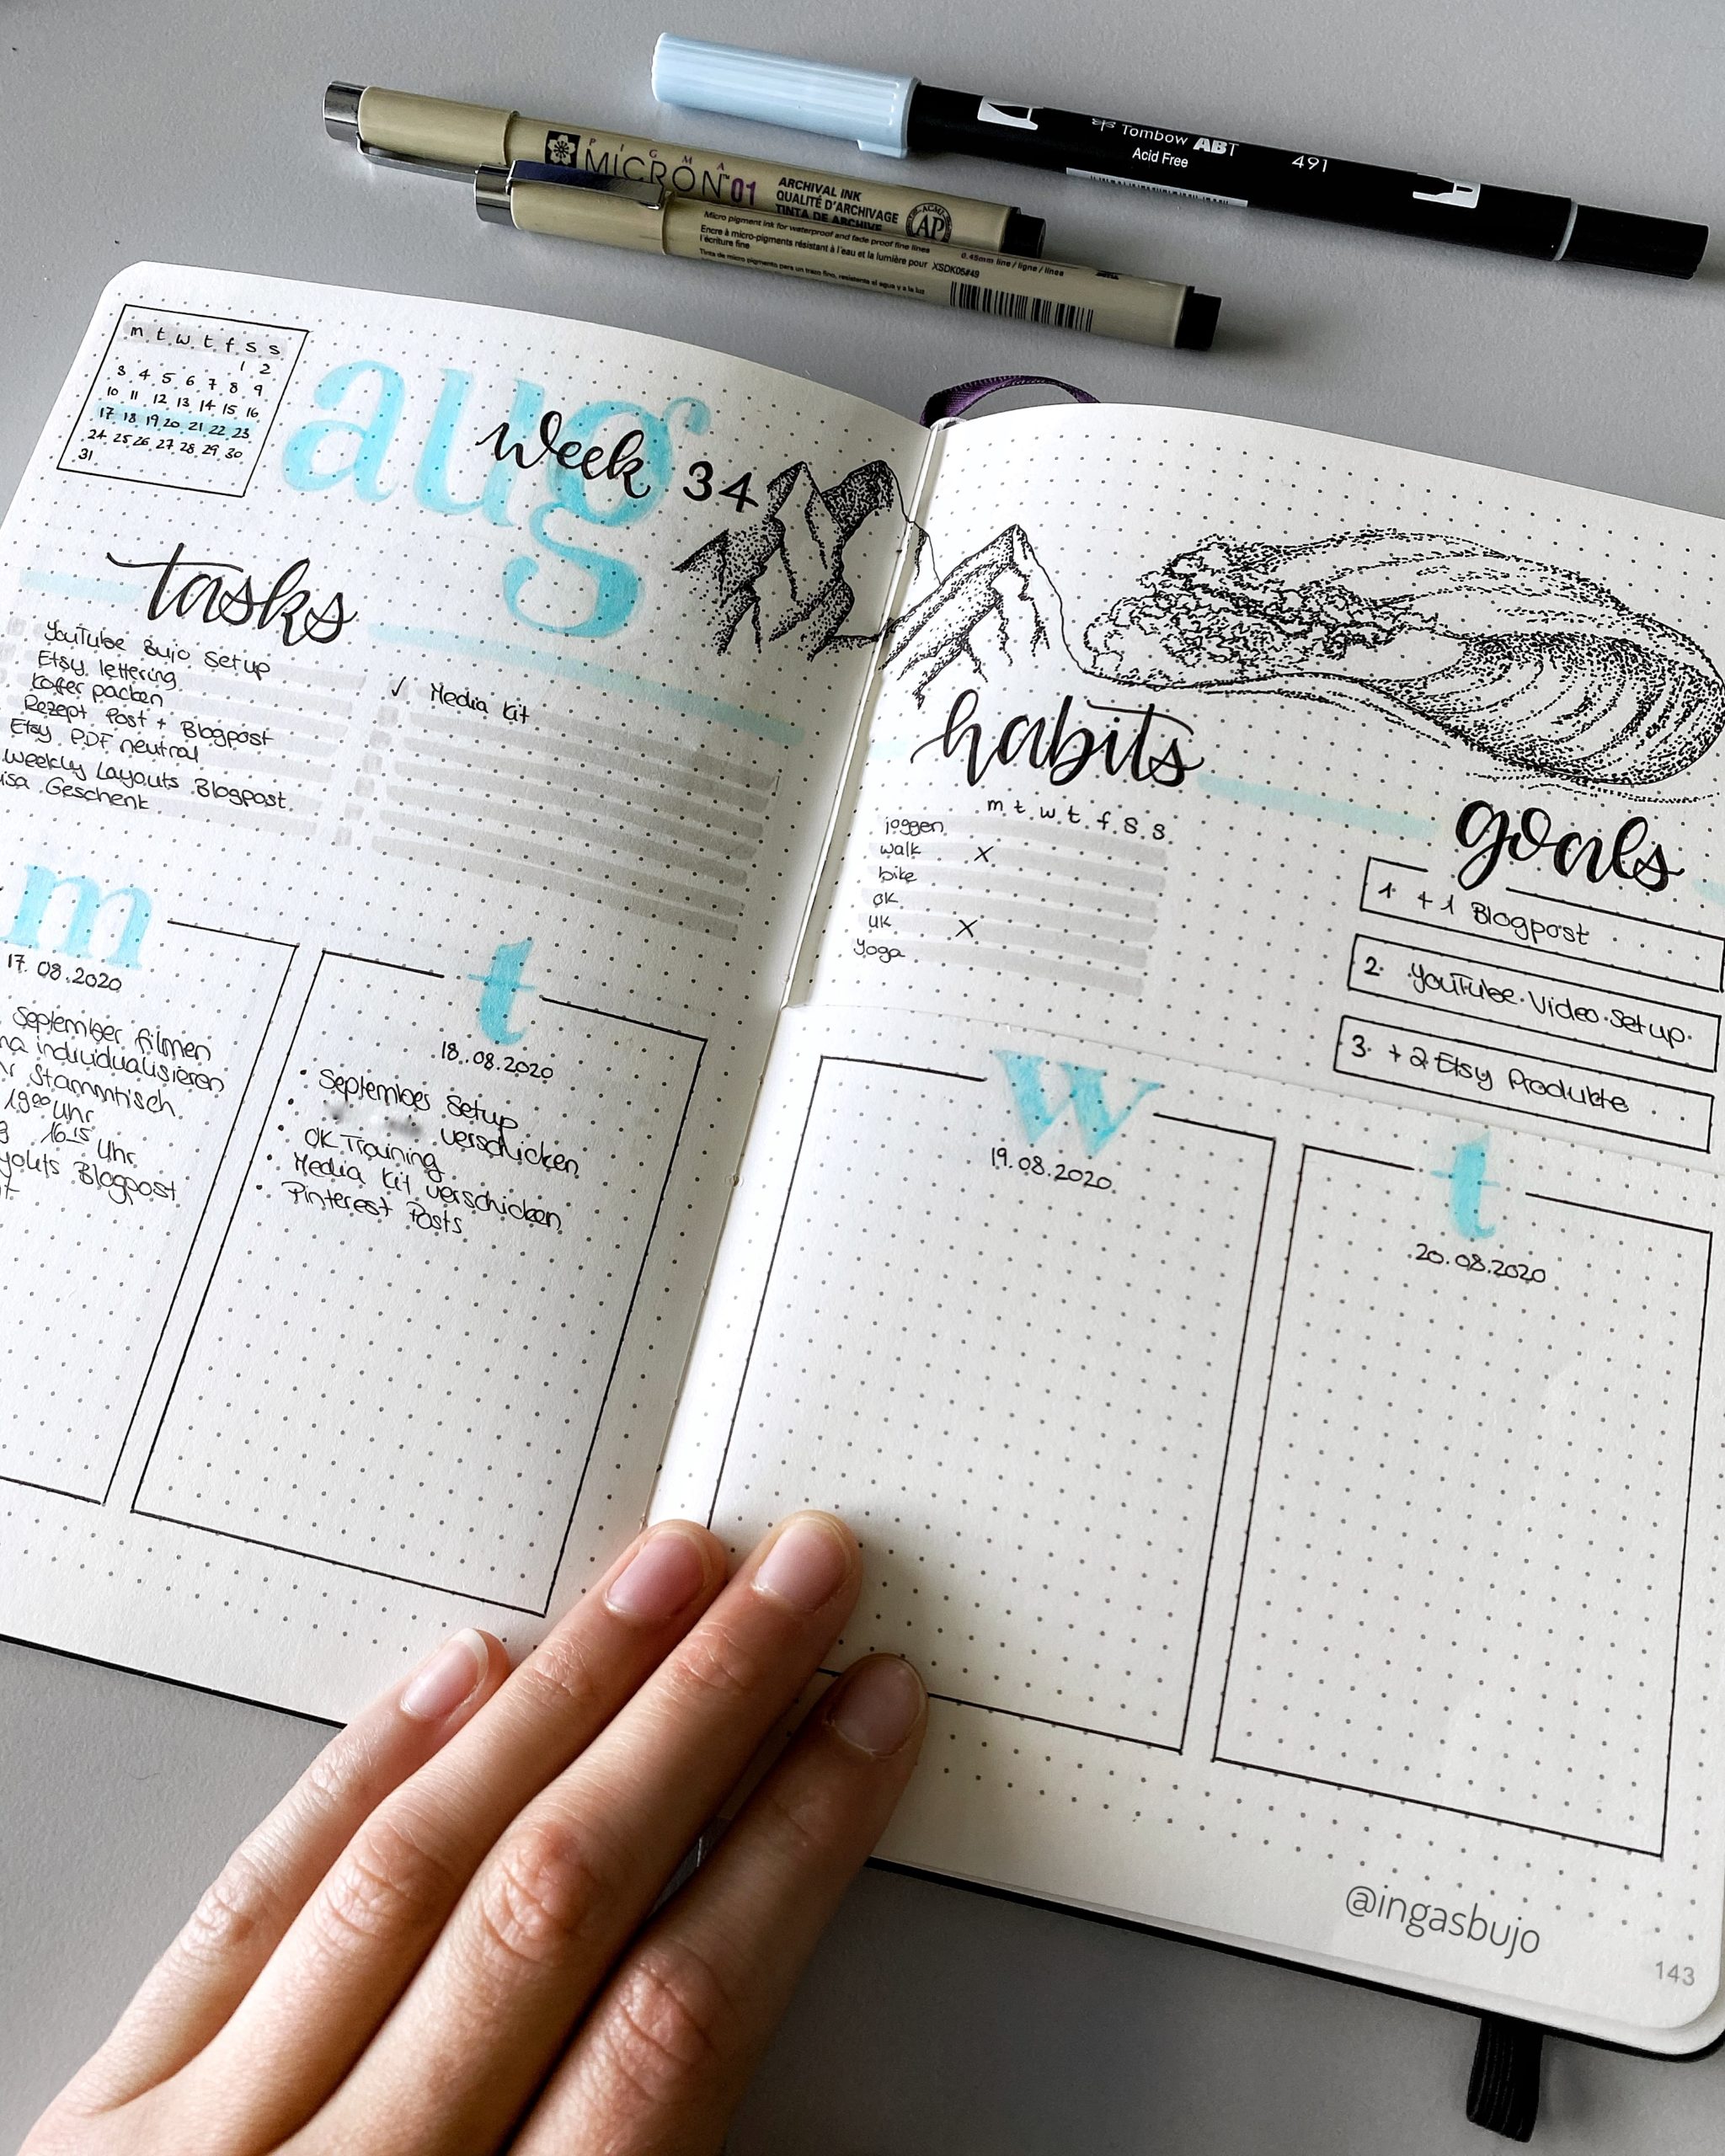 PIGMA
MICRON 01
ARCHIVAL INK
QUALITÉ D'ARCHIVAGE
TINTA DE ARCHIVE
AP
Micro pigment ink for waterproof and fade proof fine lines
Encre à micro-pigments résistant à l'eau et la lumière pour
l'écriture fine
Tinta de micro pigmento para un trazo fino, resistente al agua y a la luz
0.45mm line / ligne / lines
XSDK05#49
Tombow ABT
Acid Free
491
m t w t f s s
1 2
3 4 5 6 7 8 9
10 11 12 13 14 15 16
17 18 19 20 21 22 23
24 25 26 27 28 29 30
31
aug
week 34
tasks
YouTube Bujo Setup
Etsy lettering
Koffer packen
Rezept Post + Blogpost
Etsy PDF neutral
weekly Layouts Blogpost
isa Geschenk
✓ Media Kit
m
17.08.2020
September filmen
individualisieren
Stammtisch
19⁰⁰ Uhr
16¹⁵ Uhr
youts Blogpost
t
18.08.2020
• September Setup
• verschicken
• OK Training
• Media Kit verschicken
• Pinterest Posts
habits
m t w t f s s
joggen
walk X
bike
OK
UK X
Yoga
goals
1. +1 Blogpost
2. YouTube Video Setup
3. +2 Etsy Produkte
w
19.08.2020
t
20.08.2020
@ingasbujo
143